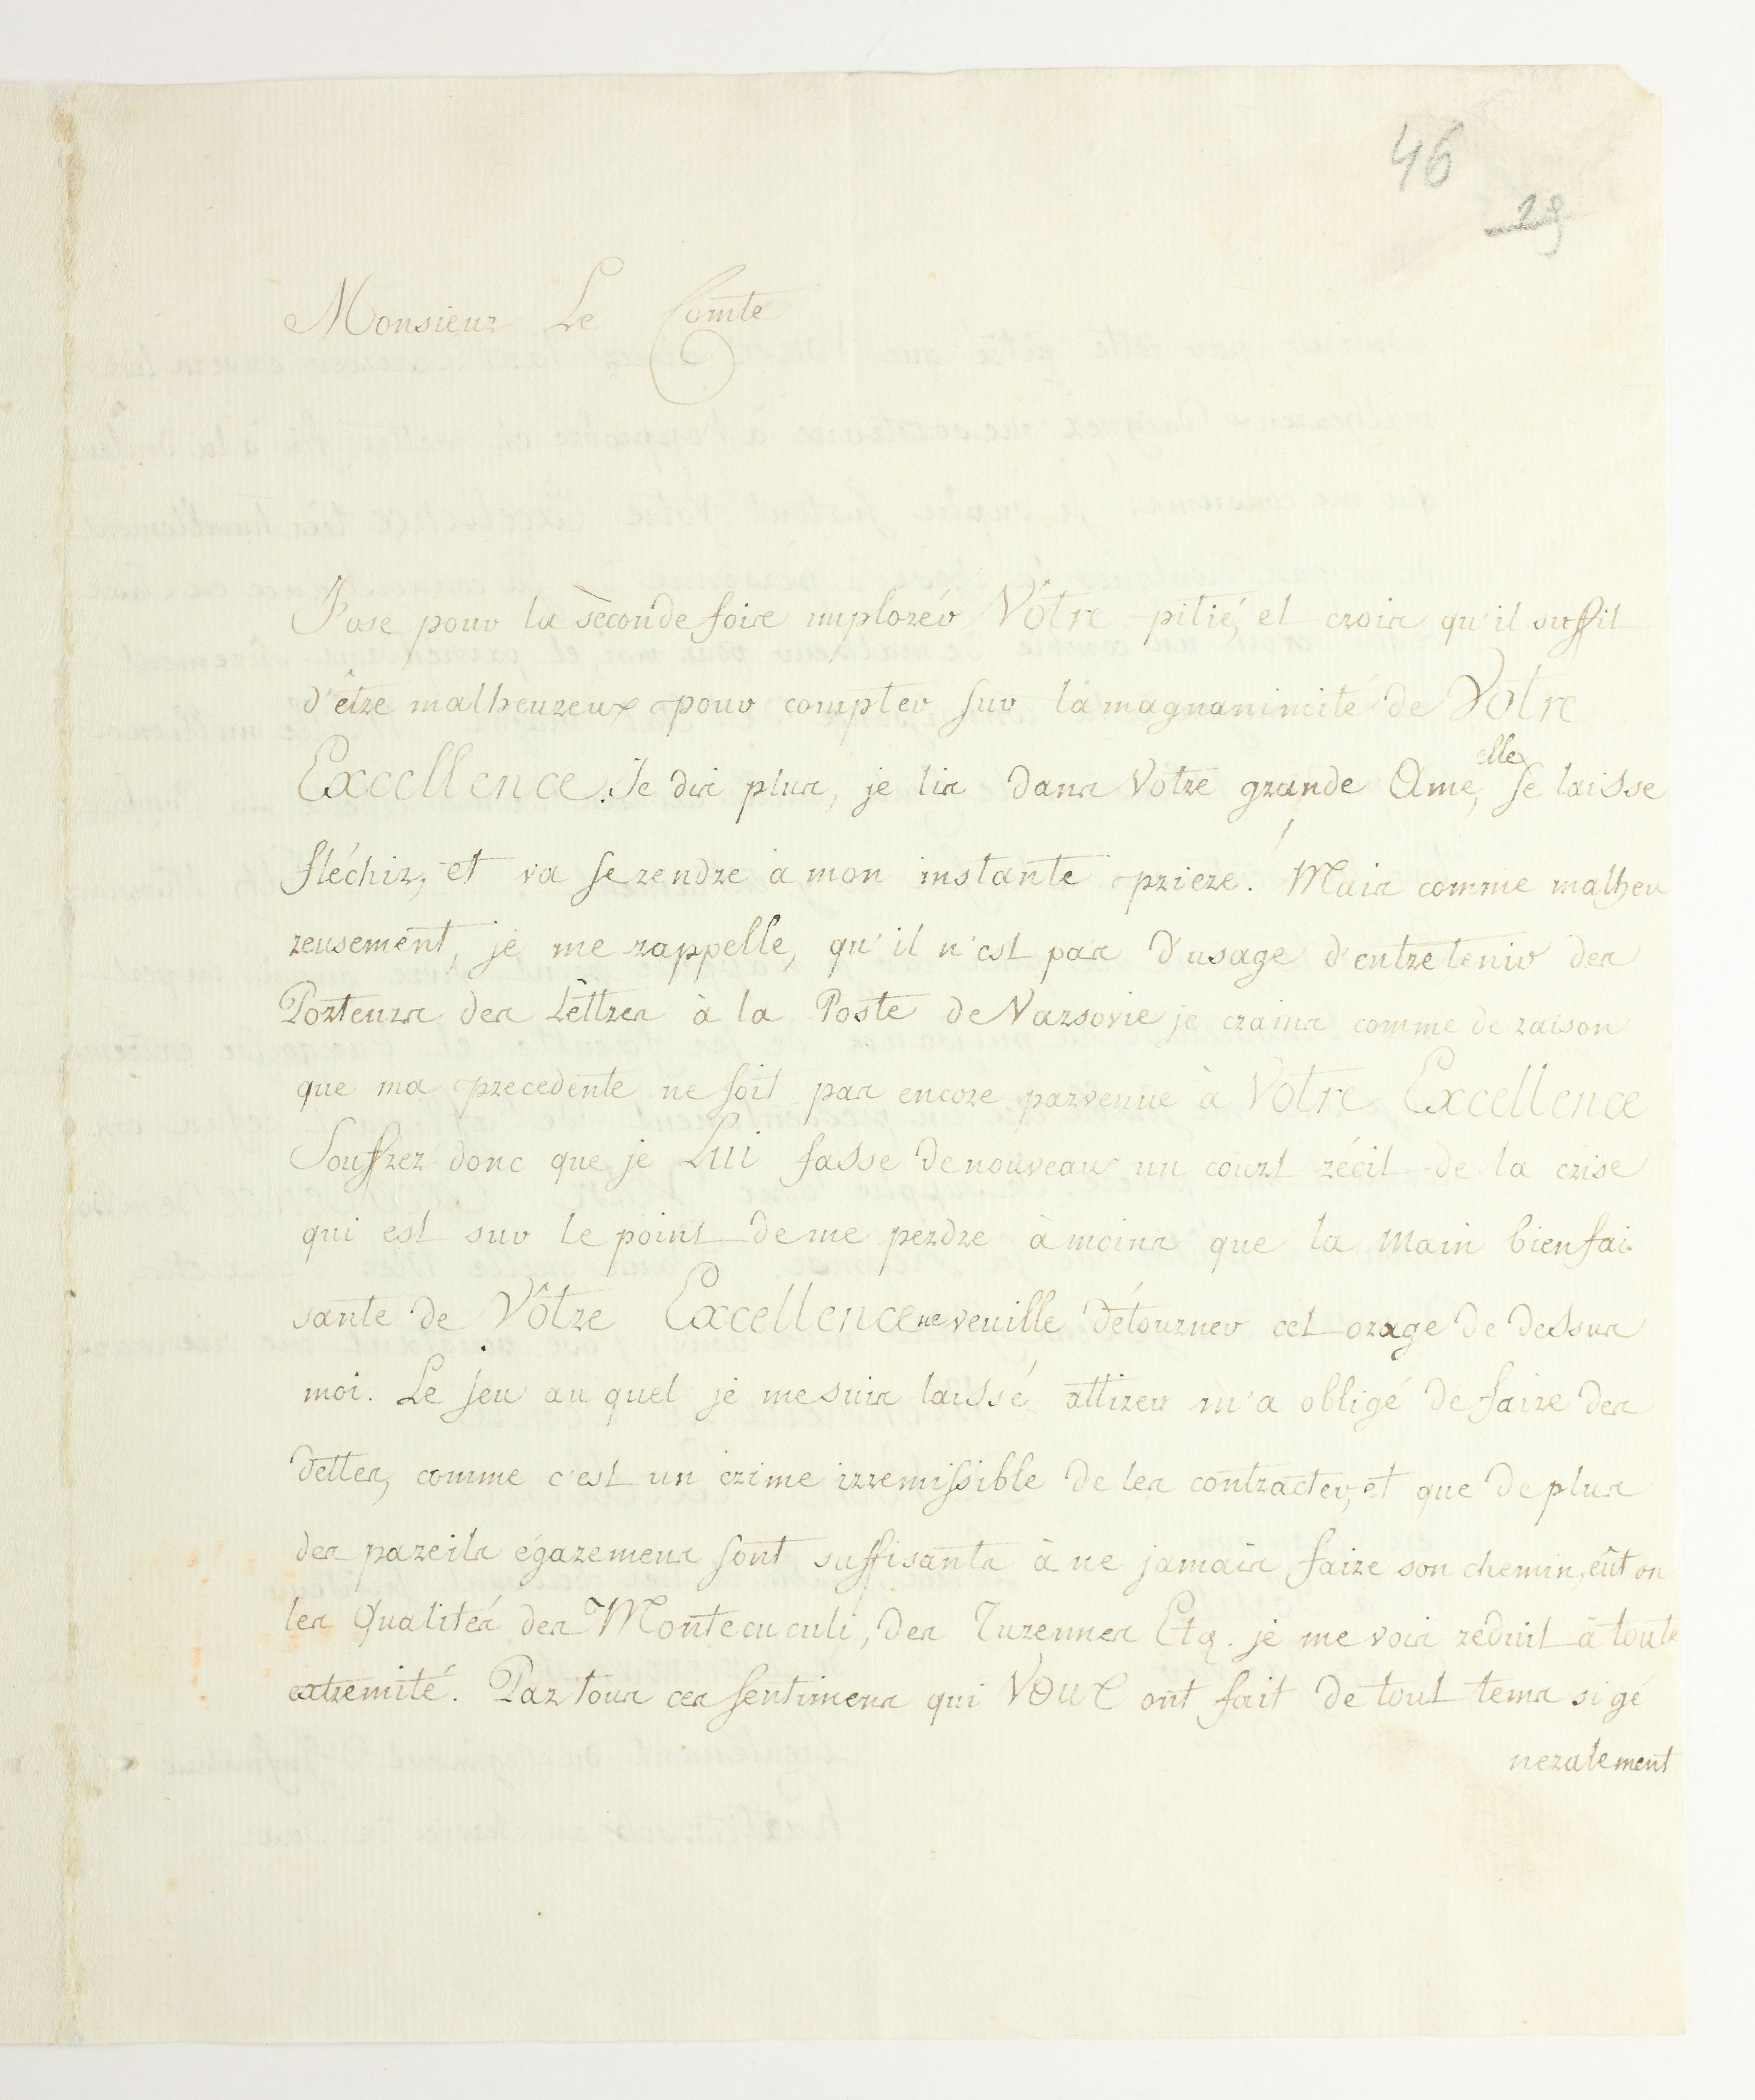 46
29
Monsieur Le Comte
J'ose pour la seconde fois implorér Vôtre pitié, et crois qu'il suffit
d'être malheureux pour compter sur la magnanimité de Votre
Excellence. Je dis plus, je lis dans Votre grande Ame, elle se laisse
fléchir, et va se rendre à mon instante priere. Mais comme malheu
reusement, je me rappelle, qu'il n'est pas d'usage d'entretenir des
Porteurs des Lettres à la Poste de Varsovie je crains comme de raison
que ma precedente ne soit pas encore parvenue à Votre Excellence
Souffrez donc que je Lui fasse de nouveau un court récit de la crise
qui est sur le point de me perdre à moins que la main bienfai
sante de Vôtre Excellence ne veuille détourner cet orage de dessus
moi. Le jeu au quel je me suis laissé attirer m'a obligé de faire des
dettes, comme c'est un crime irremissible de les contracter, et que de plus
des pareils égaremens sont suffisants à ne jamais faire son chemin, eût on
les Qualités des Montecuculi, des Turennes Etc. je me vois réduit à toute
extremité. Par tous ces sentimens qui Vous ont fait de tout tems si gé
neralement